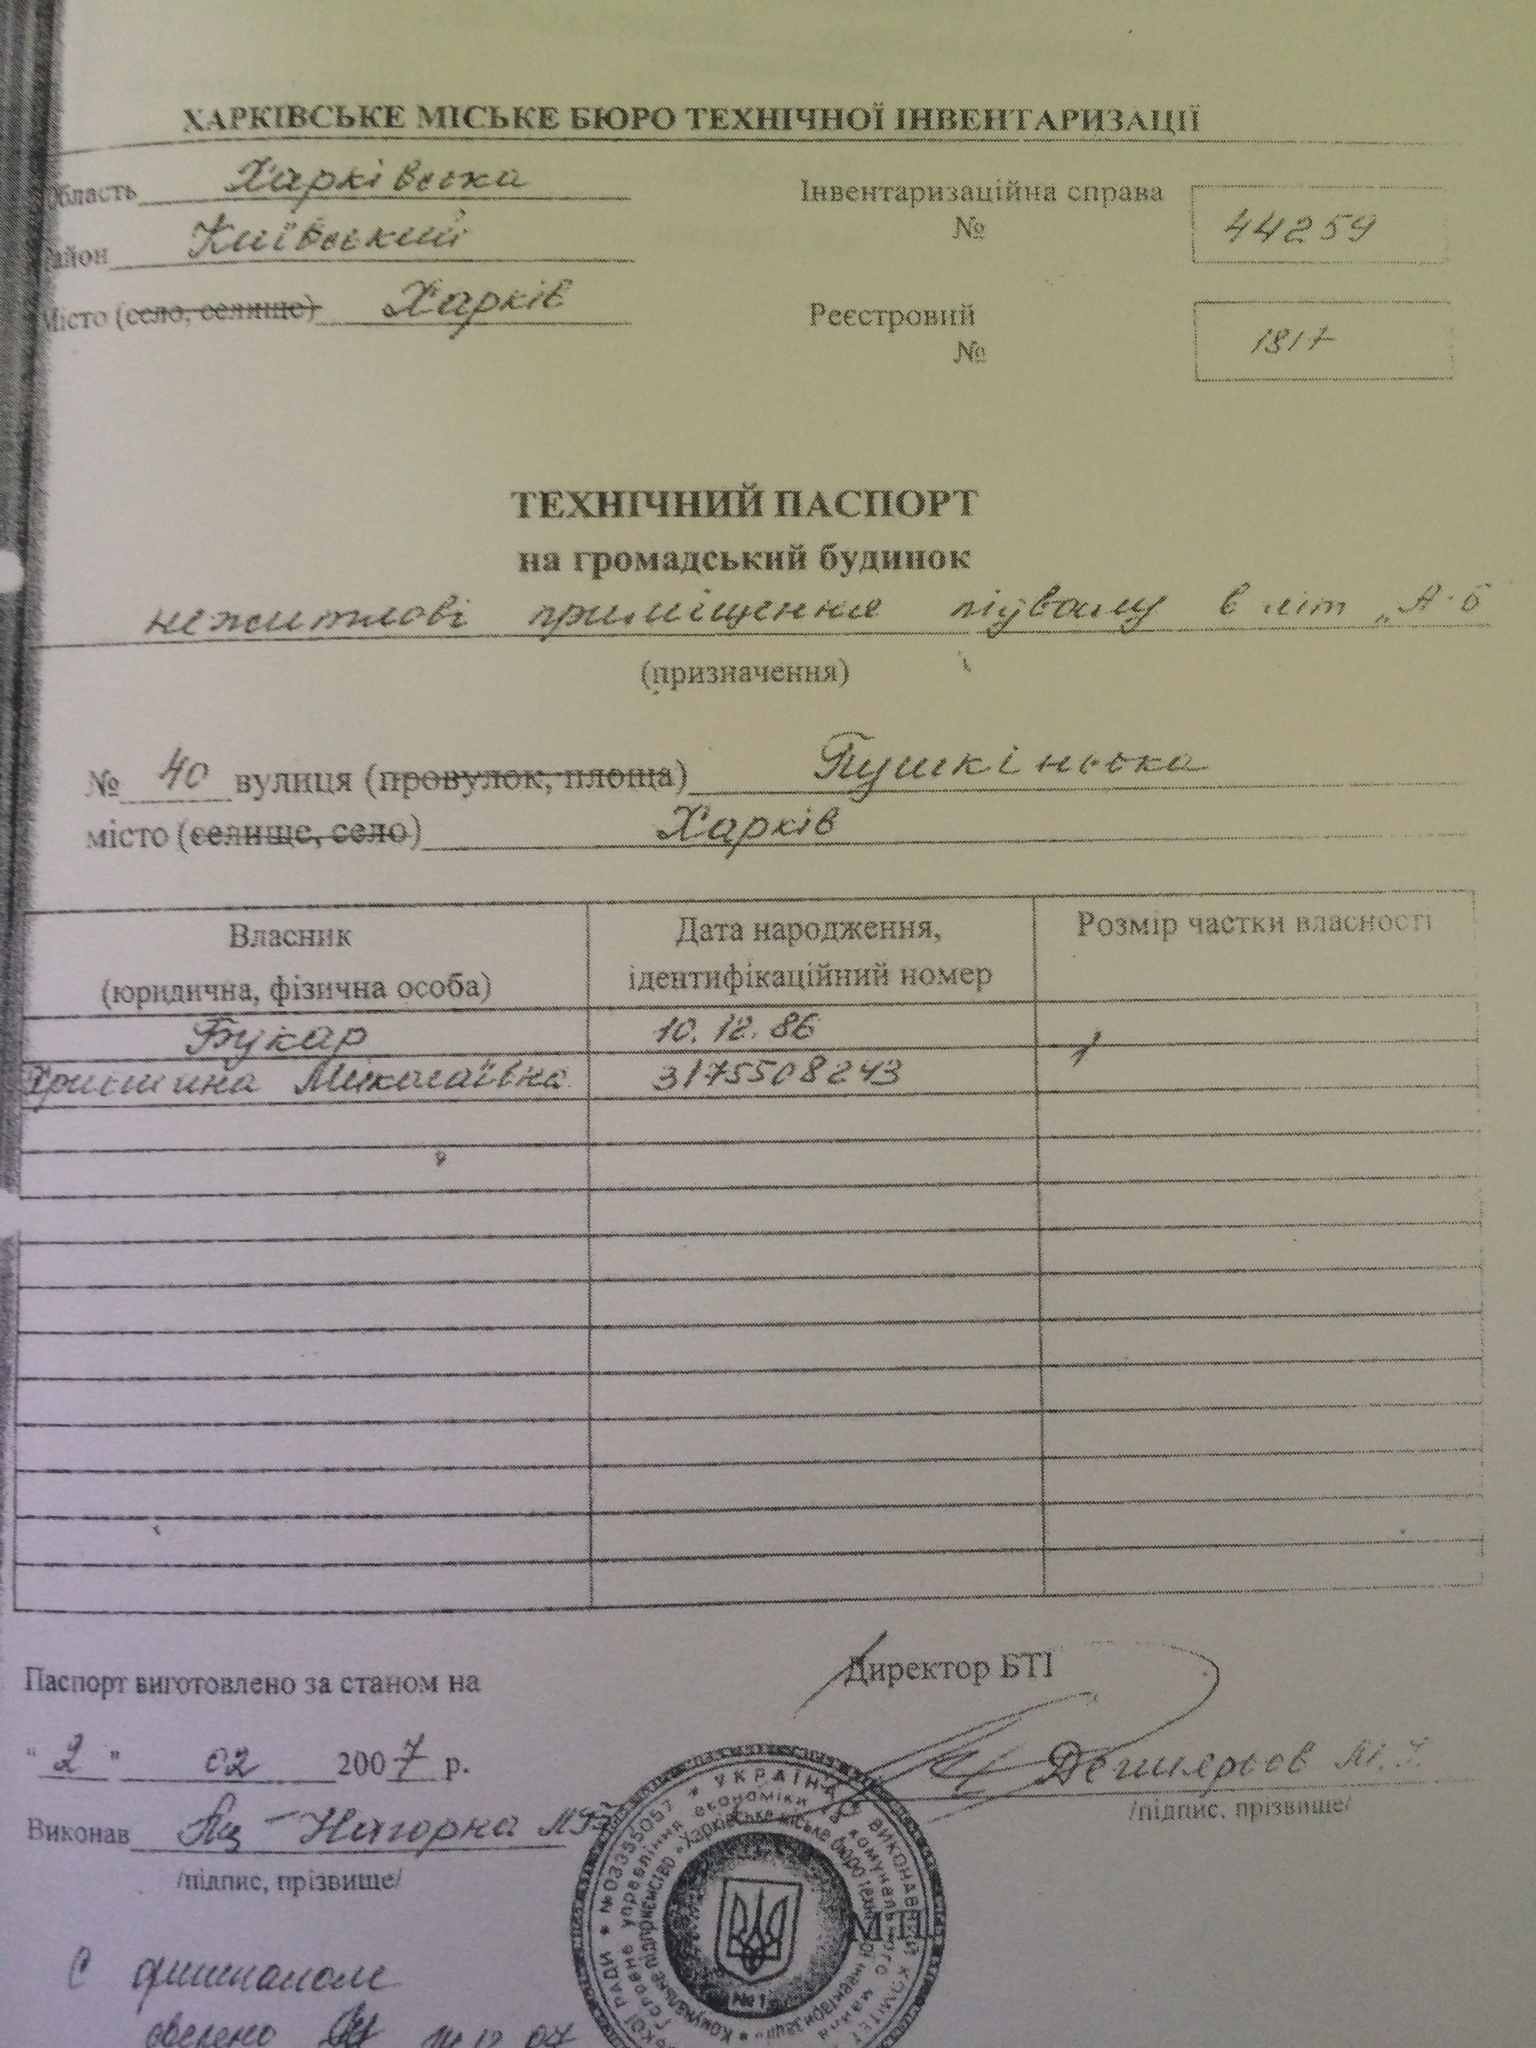 ХАРКІВСЬКЕ МІСЬКЕ БЮРО ТЕХНІЧНОЇ ІНВЕНТАРИЗАЦІЇ
область Харківська
Інвентаризаційна справа
№ 44259
район Київський
Місто (село, селище) Харків
Реєстровий
№ 1817
ТЕХНІЧНИЙ ПАСПОРТ
на громадський будинок
нежитлові приміщення підвалу в літ „А-6
(призначення)
№ 40 вулиця (провулок, площа) Пушкінська
місто (селище, село) Харків
Власник
(юридична, фізична особа)
Дата народження,
ідентифікаційний номер
Розмір частки власності
Букар 10.12.86
1
Христина Миколаївна 3175508243
Паспорт виготовлено за станом на
Директор БТІ
"2" 02 2007 р.
Дегтярьов М.
/підпис, прізвище/
Виконав Нагорна
/підпис, прізвище/
М.П.
УКРАЇНА * ВИКОНАВЧИЙ КОМІТЕТ
КОЇ РАДИ * №03355057
управління економіки та комунального майна
Комунальне підприємство «Харківське міське бюро технічної інвентаризації»
№1
С оригиналом
сверено